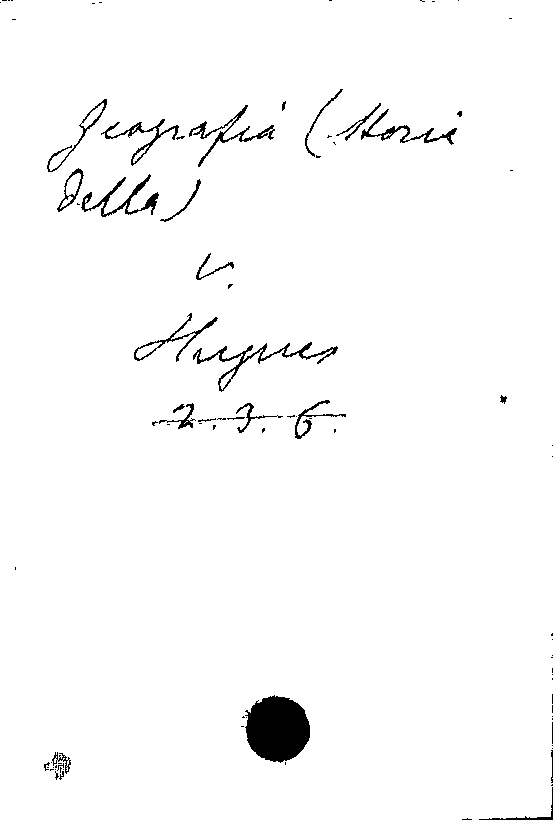 Geografia (Storia
della)
V.
Hugues
2.3.6.